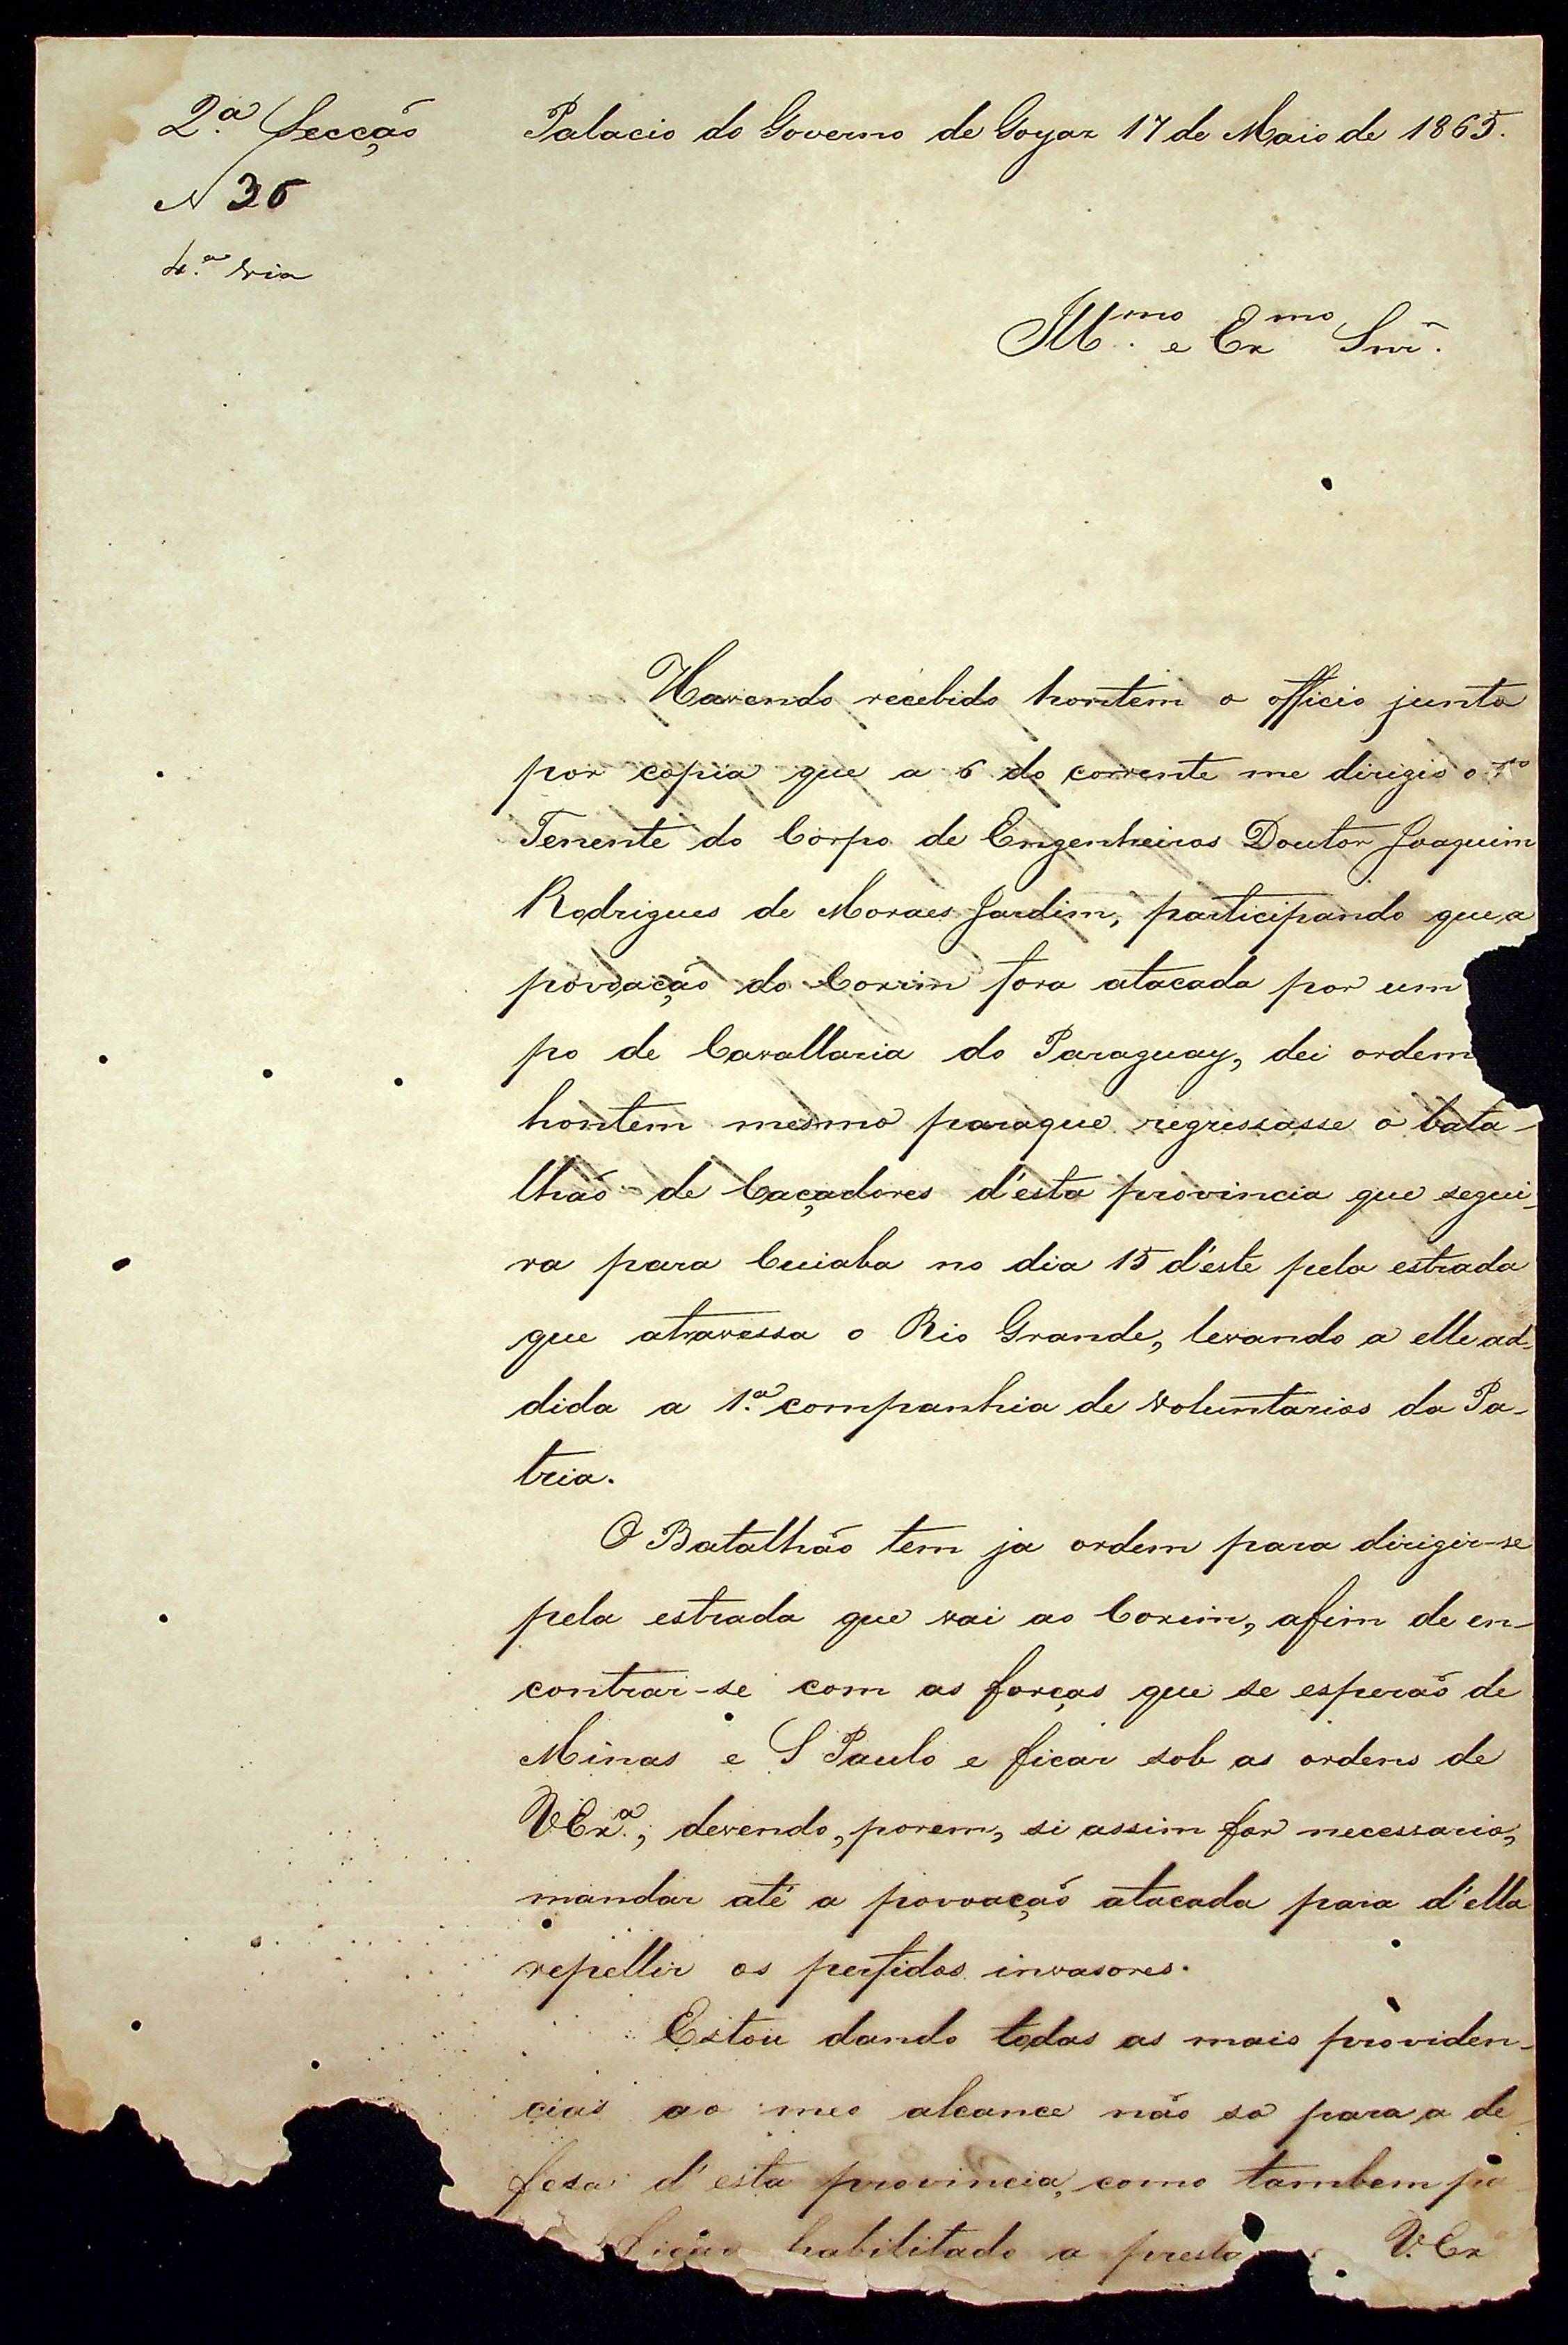 2.ª Secção
Palacio do Governo de Goyaz 17 de Maio de 1865.
N 36
4.ª via
Ill.mo e Exmo Snr.
Havendo recebido hontem o officio junto
por copia que a 6 do corrente me dirigio o 1º
Tenente do Corpo de Engenheiros Doutor Joaquim
Rodrigues de Moraes Jardim, participando que a
povoação do Coxim fora atacada por um
po de Cavallaria do Paraguay, dei ordem
hontem mesmo paraque regressasse o bata-
lhão de Caçadores d'esta provincia que segui-
ra para Cuiaba no dia 15 d'este pela estrada
que atravessa o Rio Grande, levando a elle ad-
dida a 1.ª companhia de voluntarios da Pa-
tria.
O Batalhão tem ja ordem para dirigir-se
pela estrada que vai ao Coxim, afim de en-
contrar-se com as forças que se esperão de
Minas e S Paulo e ficar sob as ordens de
VExª., devendo, porem, si assim for necessario,
mandar até a povoação atacada para d'ella
repellir os perfidos invasores.
Estou dando todas as mais providen-
cias ao meo alcance não so para a de-
fesa d'esta provincia, como tambem pa
ficar habilitado a presta V.Ex